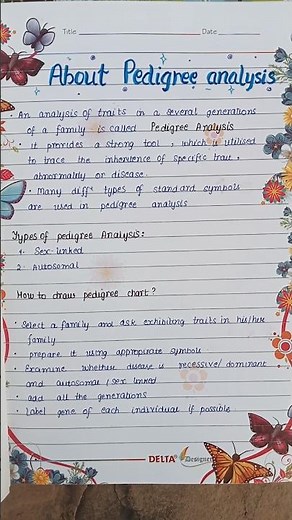 Title Date
About Pedigree analysis
• An analysis of traits in a several generations
of a family is called Pedigree Analysis
• It provides a strong tool, which is utilised
to trace the inheritence of specific trait,
abnormality or disease.
• Many diffⁿ types of standard symbols
are used in pedigree analysis
Types of pedigree Analysis:
1. Sex-linked
2. Autosomal
How to draw pedigree chart?
• Select a family and ask exhibiting traits in his/her
family.
• prepare it using appropriate symbols.
• Examine whether disease is recessive/dominant
and autosomal/sex linked
• add all the generations
• Label gene of each individual if possible
DELTA® Designer